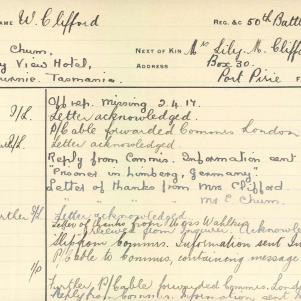 NAME W. Clifford REG. &C 50th Batt
Chum,
y View Hotel,
urnie. Tasmania.
NEXT OF KIN Mrs Lily. M. Cliff
ADDRESS Box 30.
Port Pirie
I/L. Off rep. Missing 2.4.17.
Letter acknowledged.
P/Cable forwarded Commrs London
I/L. Letter acknowledged.
Reply from Commrs. Information sent
"Prisoner in Limberg, Germany"
Letter of thanks from Mrs Clifford.
" " " " Mr E Chum.
urther I/L Letter acknowledged
Letter of thanks from Miss
received from Inquirer Acknowle
Slip from Commrs. Information sent In
I/O P/Cable to Commrs, containing message
Further P/Cable forwarded Commrs. Lon
Reply from Commrs. Information sent